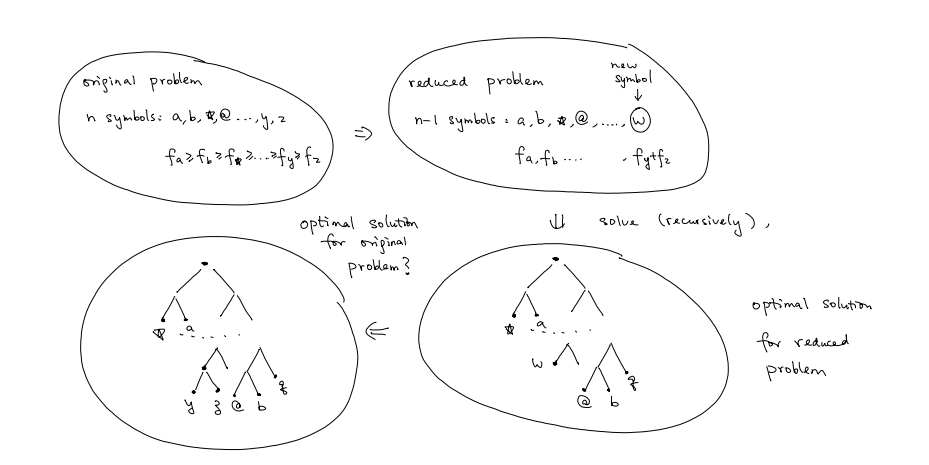 original problem
n symbols: a, b, ☆, @ ..., y, z
fa ≥ fb ≥ f☆ ≥ ... ≥ fy ≥ fz
⇒
reduced problem
new
symbol
↓
n-1 symbols : a, b, ☆, @, ....., w
fa, fb .... . fy+fz
⇓ solve (recursively) ,
optimal solution
for original
problem?
☆ a
. . . . . .
y z @ b
⇐
☆ a
. . . . . .
w
@ b
optimal solution
for reduced
problem